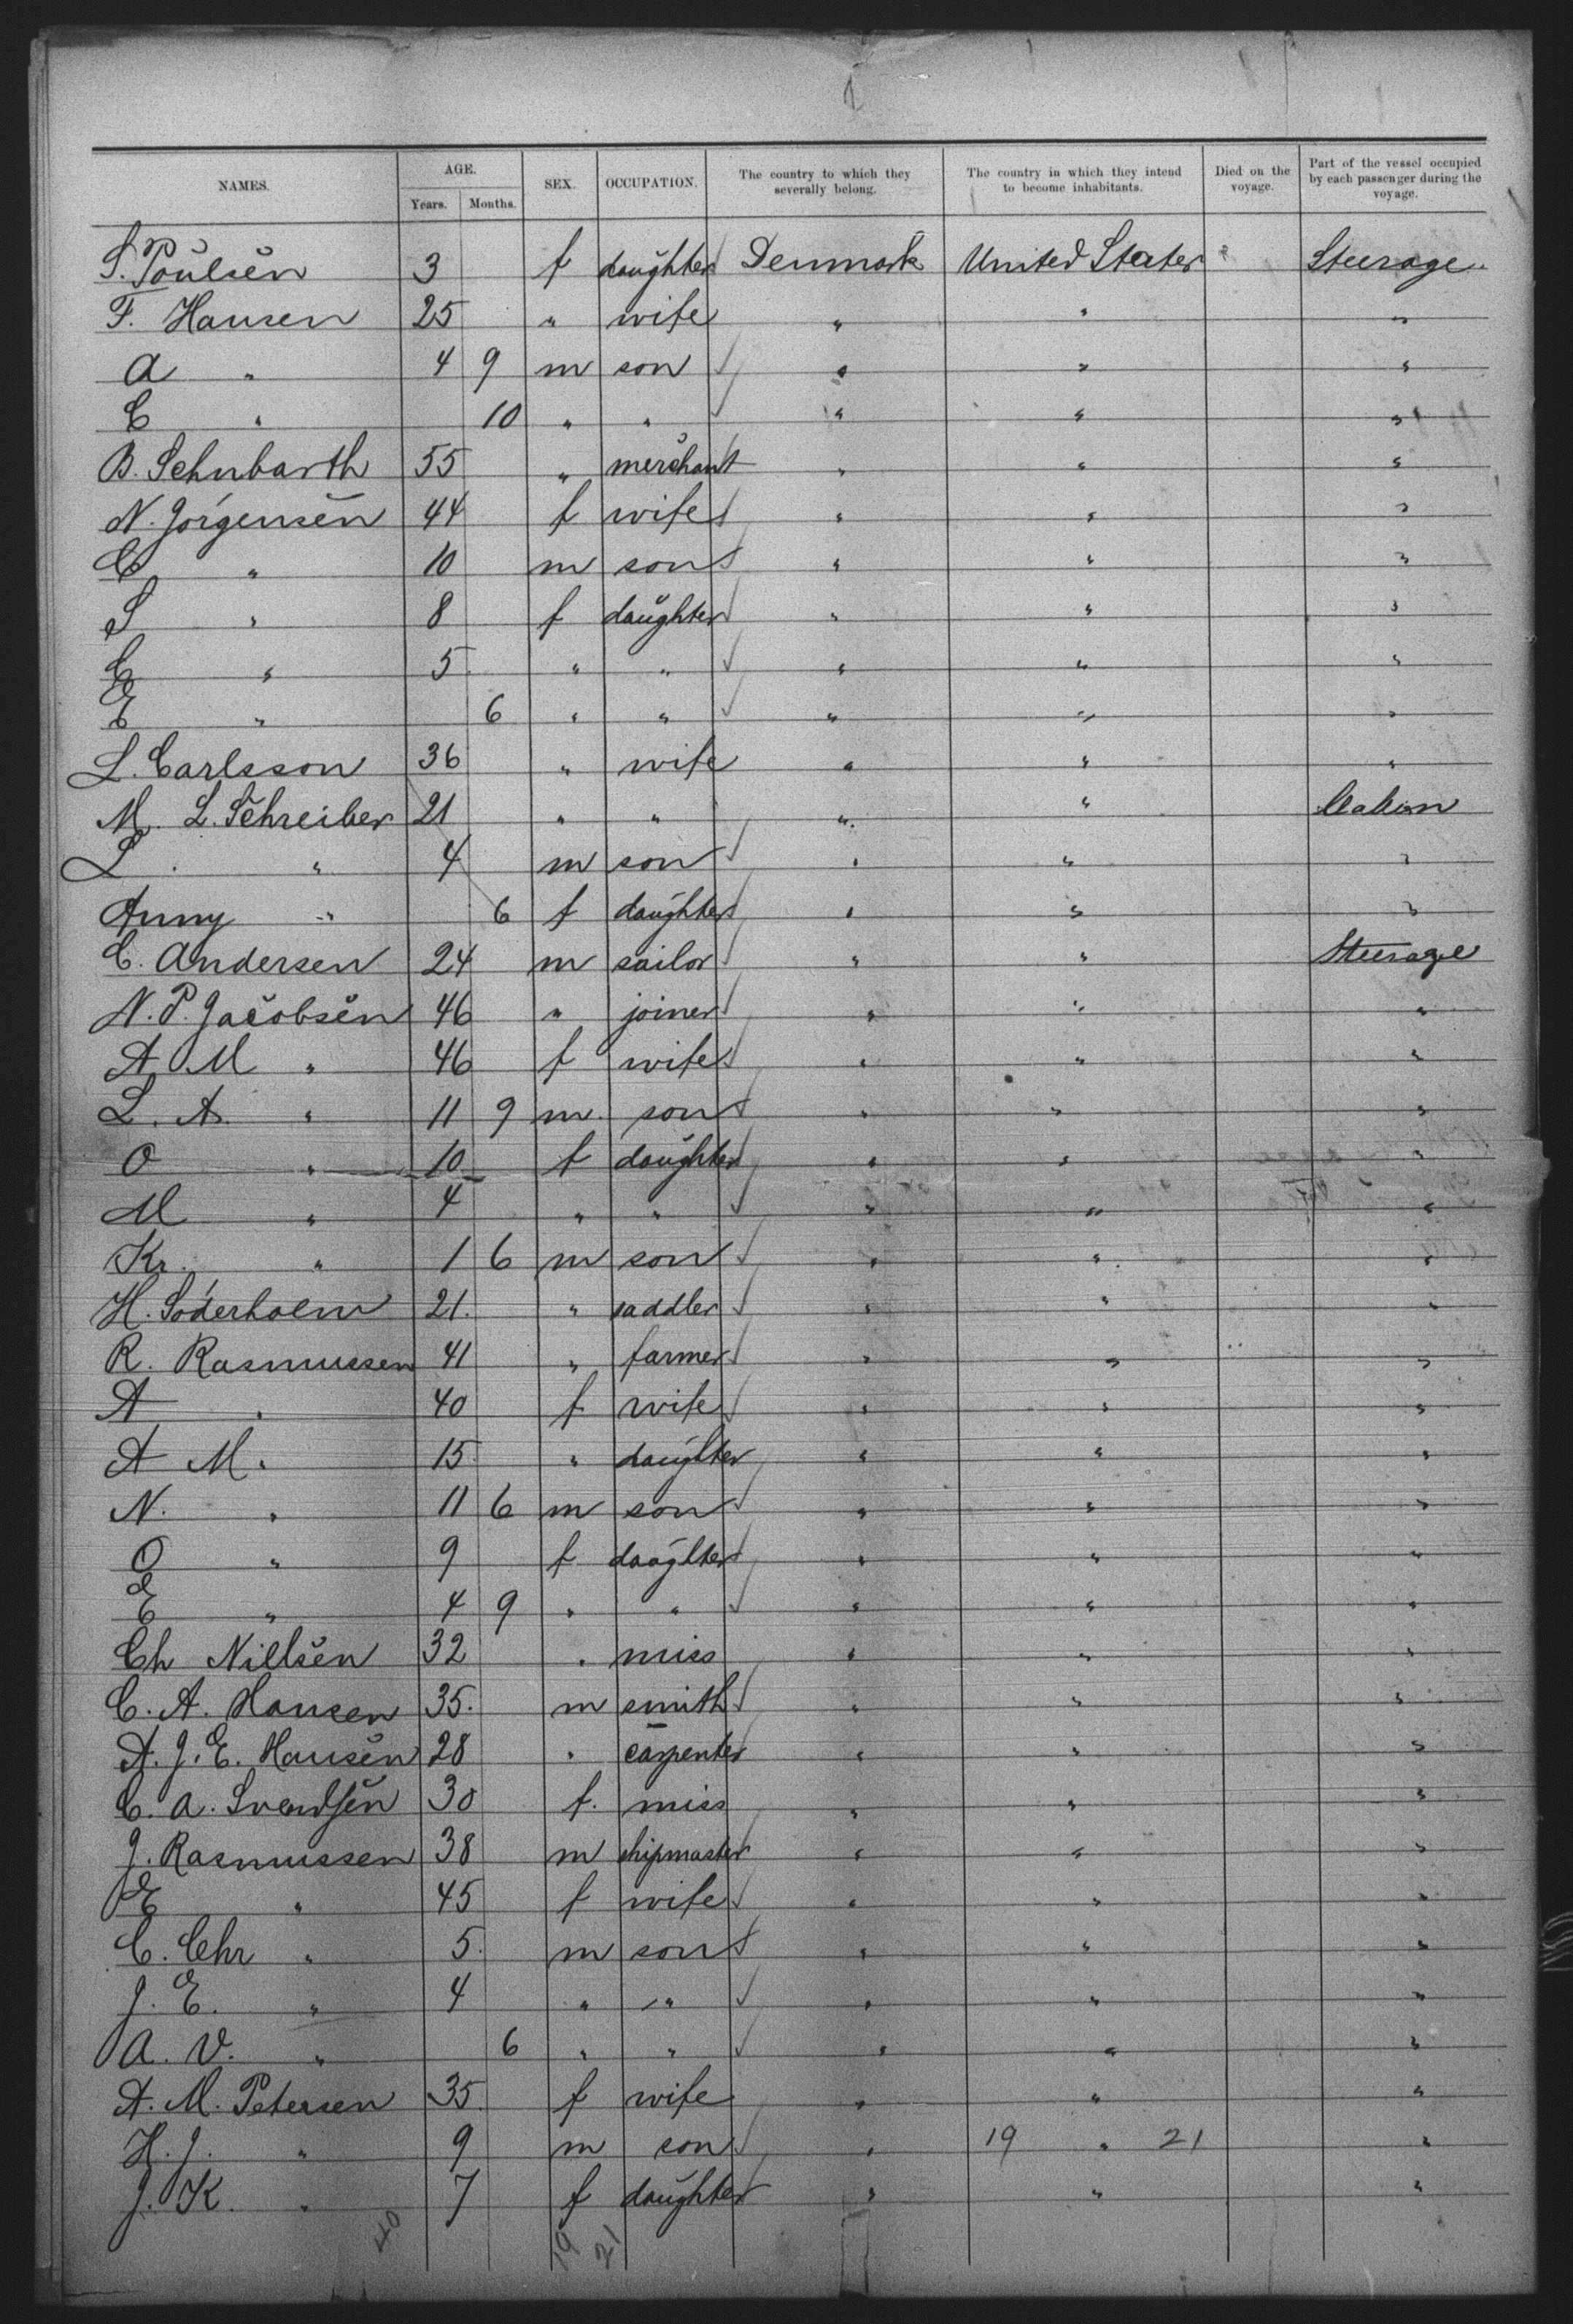 1
NAMES. AGE. SEX. OCCUPATION. The country to which they severally belong. The country in which they intend to become inhabitants. Died on the voyage. Part of the vessel occupied by each passenger during the voyage.
Years. Months.
S. Poulsen 3 f daughter Denmark United States Steerage
F. Hansen 25 " wife " " "
A " 4 9 m son " " "
C " 10 " " " " "
B. Schubarth 55 " merchant " " "
N. Jörgensen 44 f wife " " "
C " 10 m son " " "
S " 8 f daughter " " "
C " 5 " " " " "
E " 6 " " " " "
L. Carlsson 36 " wife " " "
M. L. Schreiber 21 " " " " Cabin
L. " 4 m son " " "
Anny " 6 f daughter " " "
C. Andersen 24 m sailor " " Steerage
N. P. Jacobsen 46 " joiner " " "
A M " 46 f wife " " "
L. A. " 11 9 m. son " " "
O " 10 f daughter " " "
M " 4 " " " " "
Kr. " 1 6 m son " " "
H. Söderholm 21. " saddler " " "
R. Rasmussen 41 " farmer " " "
A " 40 f wife " " "
A M. " 15 " daughter " " "
N. " 11 6 m son " " "
O " 9 f daughter " " "
E " 4 9 " " " " "
Ch Nielsen 32 " miss " " "
C. A. Hansen 35. m smith " " "
A. J. E. Hansen 28 " carpenter " " "
C. A. Svendsen 30 f. miss " " "
J. Rasmussen 38 m shipmaster " " "
E " 45 f wife " " "
C. Chr " 5. m son " " "
J. E. " 4 " " " " "
A. V. " 6 " " " " "
A. M. Petersen 35. f wife " " "
H. J. " 9 m son " 19 " 21 "
J. K. " 7 f daughter " " "
40 19 21